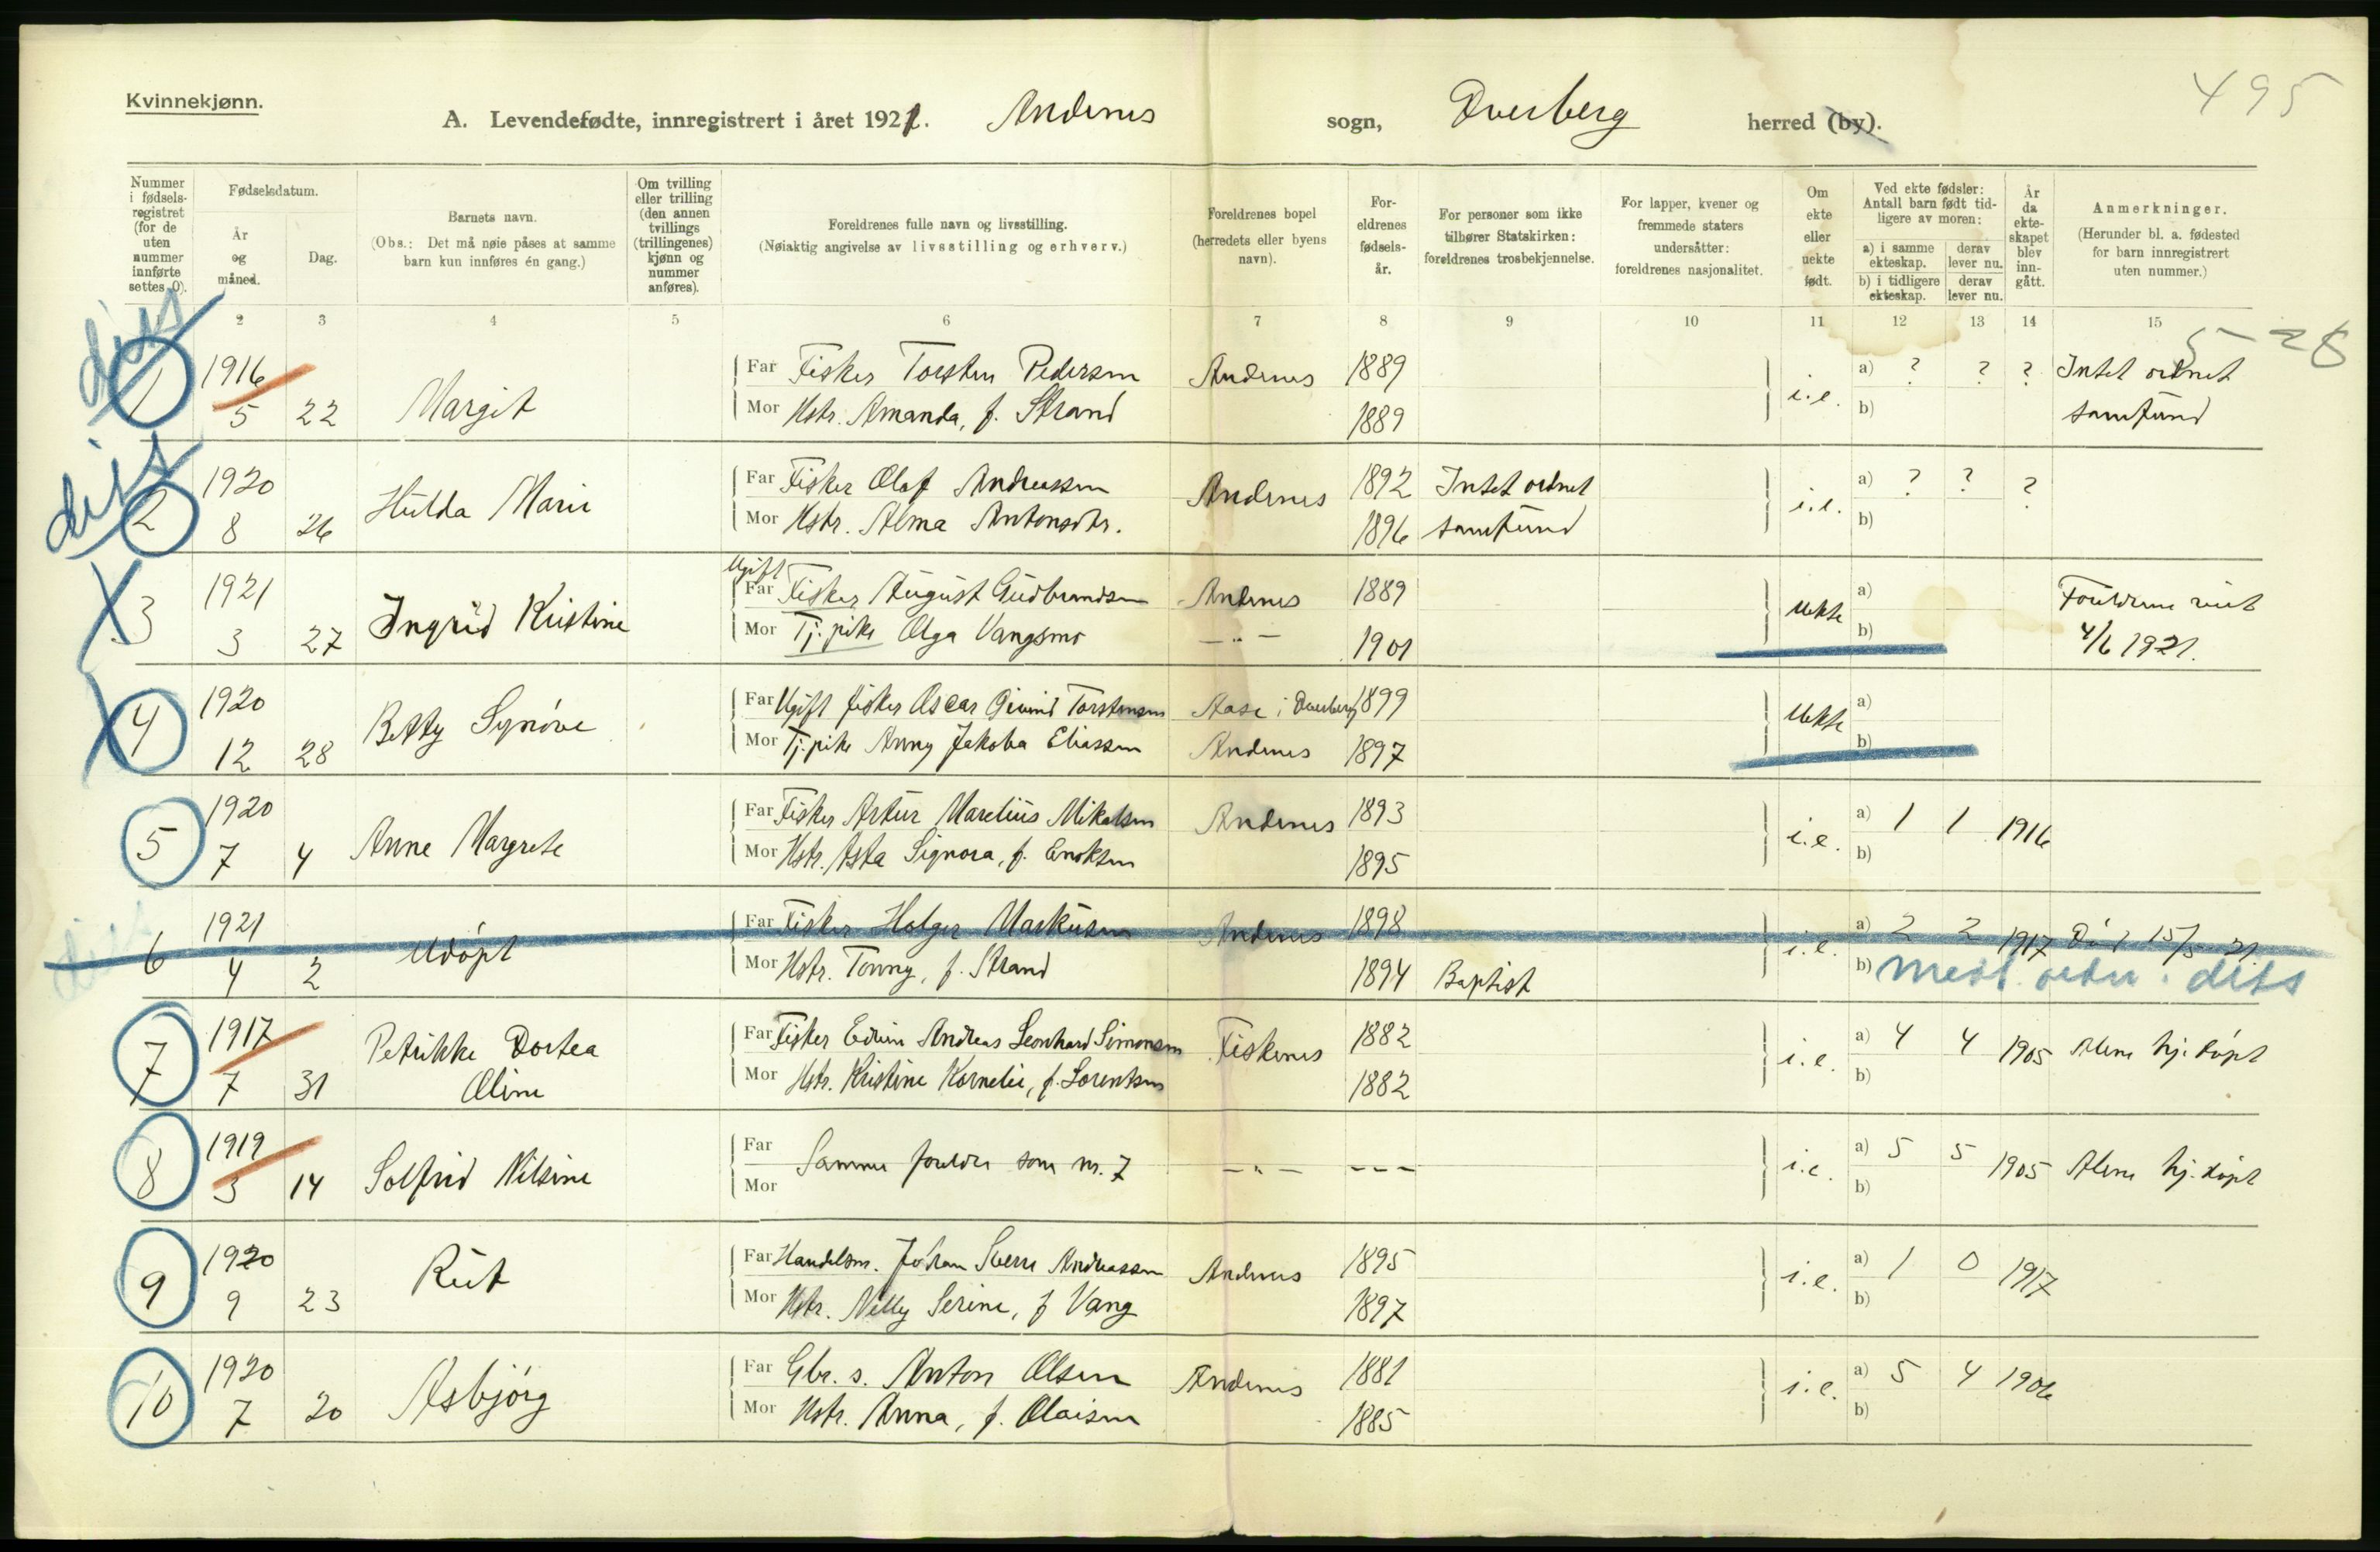 495
Kvinnekjønn.
A. Levendefødte, innregistrert i året 1921. Andenes sogn, Dverberg herred (by).
Nummer i fødsels-registret (for de uten nummer innførte settes 0).
Fødselsdatum.
År og måned.
Dag.
Barnets navn.
(Obs.: Det må nøie påses at samme barn kun innføres én gang.)
Om tvilling eller trilling (den annen tvillings (trillingenes) kjønn og nummer anføres).
Foreldrenes fulle navn og livsstilling.
(Nøiaktig angivelse av livsstilling og erhverv.)
Foreldrenes bopel (herredets eller byens navn).
For-eldrenes fødsels-år.
For personer som ikke tilhører Statskirken: foreldrenes trosbekjennelse.
For lapper, kvener og fremmede staters undersåtter: foreldrenes nasjonalitet.
Om ekte eller uekte født.
Ved ekte fødsler: Antall barn født tid-ligere av moren:
a) i samme ekteskap. derav lever nu.
b) i tidligere ekteskap. derav lever nu.
År da ekte-skapet blev inn-gått.
Anmerkninger.
(Herunder bl. a. fødested for barn innregistrert uten nummer.)
1 2 3 4 5 6 7 8 9 10 11 12 13 14 15
5-28
diss
1916 Far Fisker Torsten Pedersen Andenes 1889 a) ? ? ? Intet ordnet
1 5 22 Margit Mor Hstr. Amanda, f. Strand 1889 i.e. b) samfund
diss
1920 Far Fisker Olaf Andreassen Andenes 1892 Intet ordnet a) ? ? ?
2 8 26 Hulda Marie Mor Hstr. Alma Antonsdtr. 1896 samfund i.e. b)
Ugift
1921 Far Fisker August Gudbrandsen Andenes 1889 a) Foreldrene viet
3 3 27 Ingrid Kristine Mor Tj.pike Olga Vangsmo — " — 1901 Uekte b) 4/6 1921.
1920 Far Ugift fisker Oscar Eivind Torstensen Aase i Dverberg 1899 a)
4 12 28 Betty Synöve Mor Tj.pike Anny Jakoba Eliassen Andenes 1897 Uekte b)
1920 Far Fisker Artur Marelius Mikalsen Andenes 1893 a) 1 1 1916
5 7 4 Anne Margrete Mor Hstr. Asta Signora, f. Enoksen 1895 i.e. b)
1921 Far Fisker Holger Markusen Andenes 1898 a) 2 2 1917 Död 15/5 21
6 4 2 Udöpt Mor Hstr. Tonny, f. Strand 1894 Baptist i.e. b) diss
1917 Petrikke Dortea Far Fisker Edvin Andreas Leonhard Simonsen Fiskenes 1882 a) 4 4 1905 Alene hj. döpt
7 7 31 Oline Mor Hstr. Kristine Kornelie, f. Lorentsen 1882 i.e. b)
1919 Far Samme foreldre som nr. 7 — " — - - - a) 5 5 1905 Alene hj. döpt
8 3 14 Solfrid Nilsine Mor i.e. b)
1920 Far Handelsm. Johan Sverre Andreassen Andenes 1895 a) 1 0 1917
9 9 23 Rut Mor Hstr. Nelly Serine, f Vang 1897 i.e. b)
1920 Far Gbr. s. Anton Olsen Andenes 1881 a) 5 4 1906
10 7 20 Asbjörg Mor Hstr. Anna, f. Olaisen 1885 i.e. b)